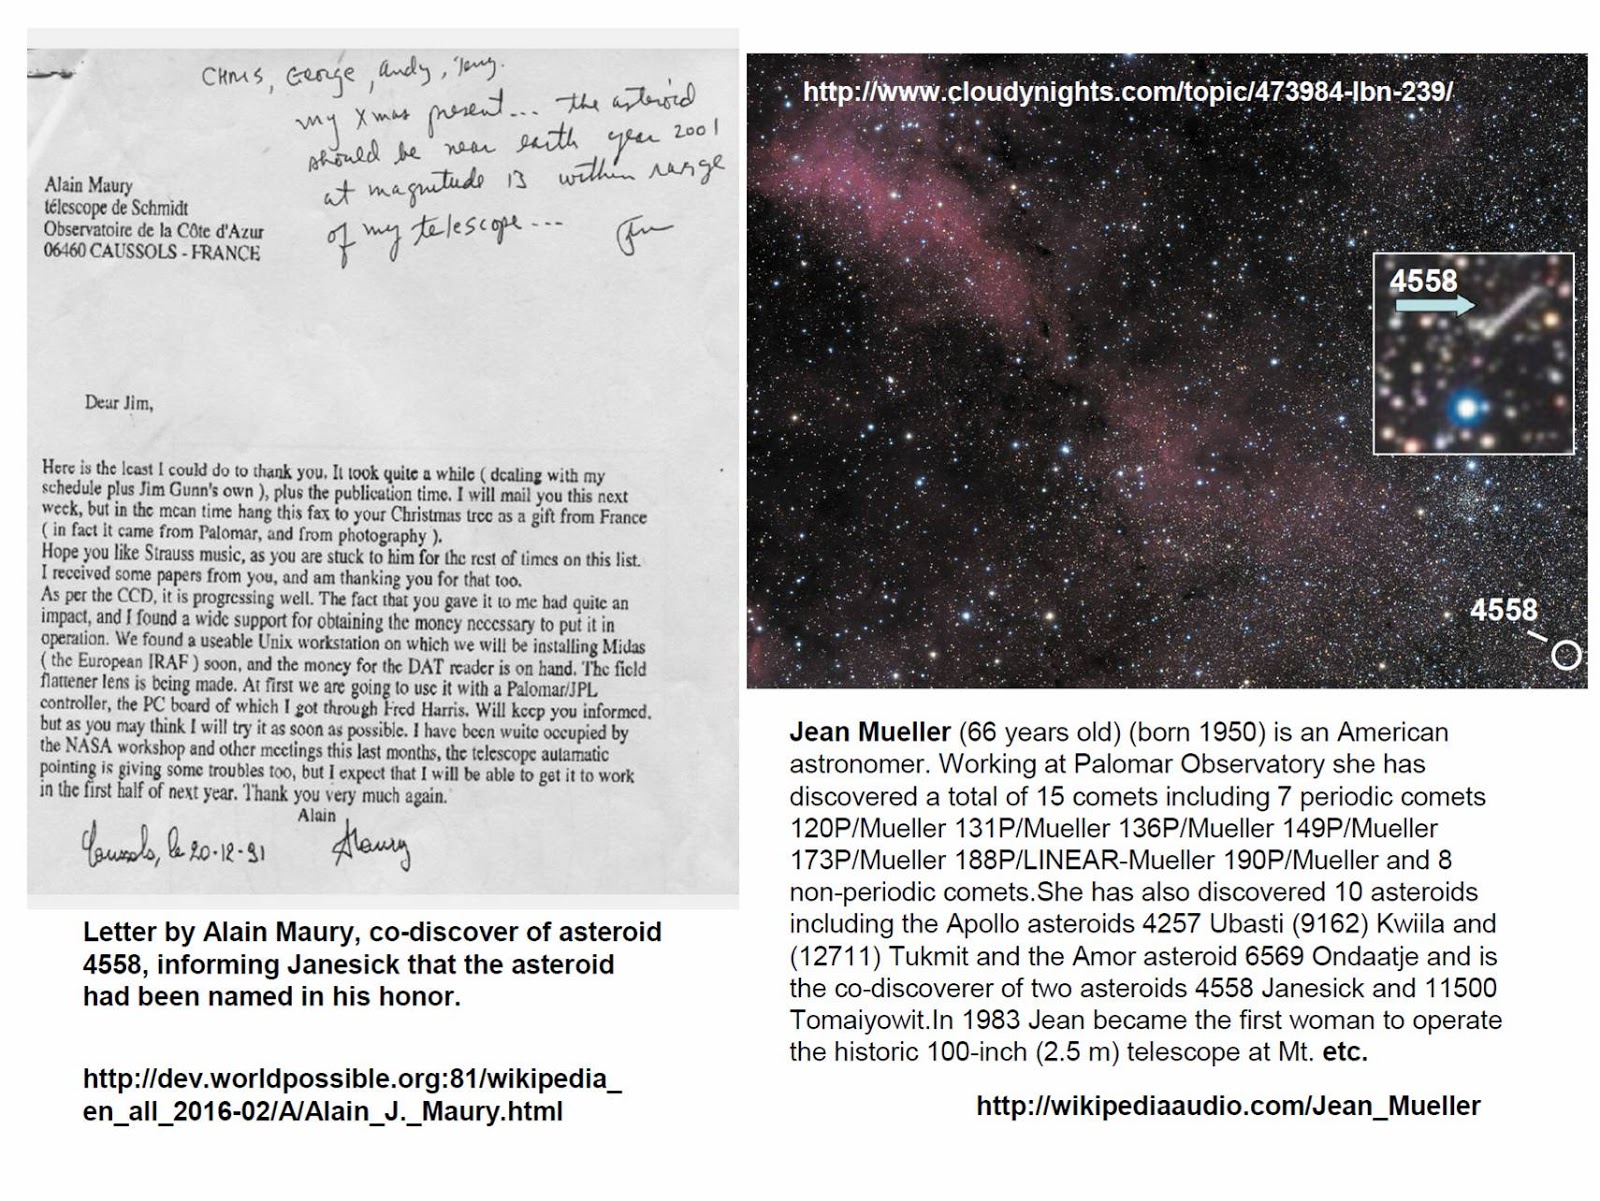 Chris, George, Andy, Terry.
my Xmas present... the asteroid
should be near earth year 2001
at magnitude 13 within range
of my telescope...
Jim
Alain Maury
télescope de Schmidt
Observatoire de la Côte d'Azur
06460 CAUSSOLS - FRANCE
Dear Jim,
Here is the least I could do to thank you. It took quite a while ( dealing with my
schedule plus Jim Gunn's own ), plus the publication time. I will mail you this next
week, but in the mean time hang this fax to your Christmas tree as a gift from France
( in fact it came from Palomar, and from photography ).
Hope you like Strauss music, as you are stuck to him for the rest of times on this list.
I received some papers from you, and am thanking you for that too.
As per the CCD, it is progressing well. The fact that you gave it to me had quite an
impact, and I found a wide support for obtaining the money necessary to put it in
operation. We found a useable Unix workstation on which we will be installing Midas
( the European IRAF ) soon, and the money for the DAT reader is on hand. The field
flattener lens is being made. At first we are going to use it with a Palomar/JPL
controller, the PC board of which I got through Fred Harris. Will keep you informed.
but as you may think I will try it as soon as possible. I have been wuite occupied by
the NASA workshop and other meetings this last months, the telescope autamatic
pointing is giving some troubles too, but I expect that I will be able to get it to work
in the first half of next year. Thank you very much again.
Alain
Caussols, le 20-12-91
AMaury
Letter by Alain Maury, co-discover of asteroid
4558, informing Janesick that the asteroid
had been named in his honor.
http://dev.worldpossible.org:81/wikipedia_
en_all_2016-02/A/Alain_J._Maury.html
http://www.cloudynights.com/topic/473984-lbn-239/
4558
4558
Jean Mueller (66 years old) (born 1950) is an American
astronomer. Working at Palomar Observatory she has
discovered a total of 15 comets including 7 periodic comets
120P/Mueller 131P/Mueller 136P/Mueller 149P/Mueller
173P/Mueller 188P/LINEAR-Mueller 190P/Mueller and 8
non-periodic comets.She has also discovered 10 asteroids
including the Apollo asteroids 4257 Ubasti (9162) Kwiila and
(12711) Tukmit and the Amor asteroid 6569 Ondaatje and is
the co-discoverer of two asteroids 4558 Janesick and 11500
Tomaiyowit.In 1983 Jean became the first woman to operate
the historic 100-inch (2.5 m) telescope at Mt. etc.
http://wikipediaaudio.com/Jean_Mueller